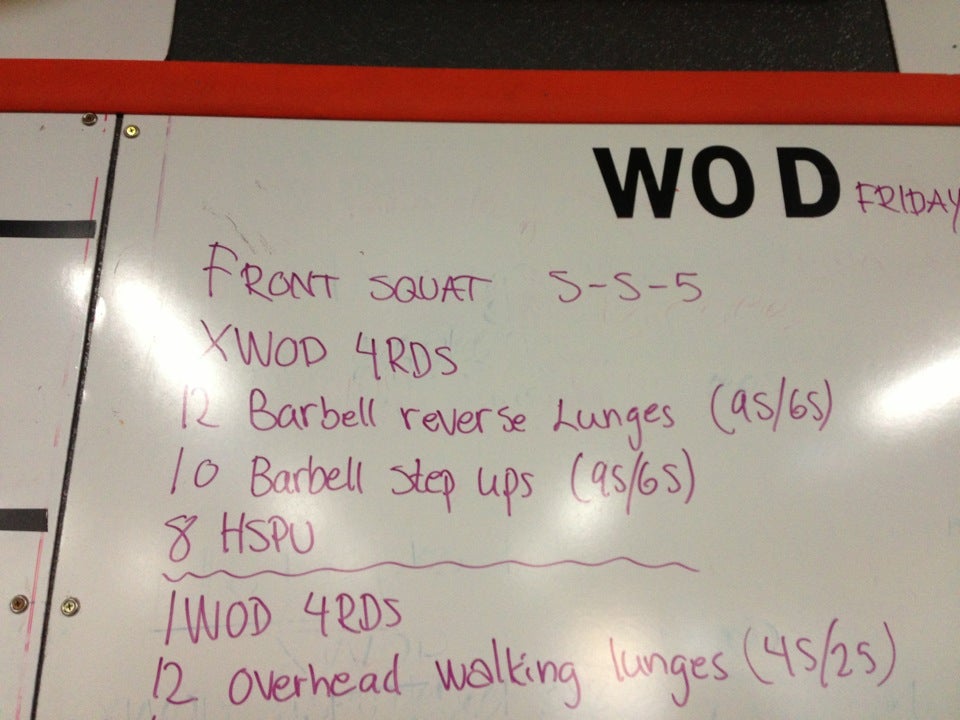 WOD FRIDAY
FRONT SQUAT 5-5-5
XWOD 4RDS
12 Barbell reverse Lunges (95/65)
10 Barbell step ups (95/65)
8 HSPU
1WOD 4RDS
12 overhead walking lunges (45/25)